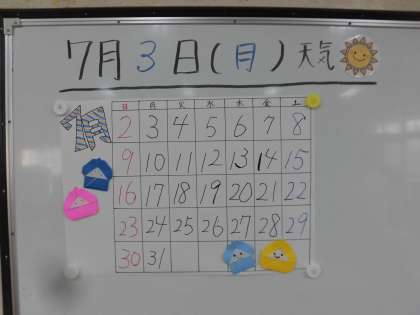 7月3日(月)天気
7月
日 月 火 水 木 金 土
2 3 4 5 6 7 8
9 10 11 12 13 14 15
16 17 18 19 20 21 22
23 24 25 26 27 28 29
30 31